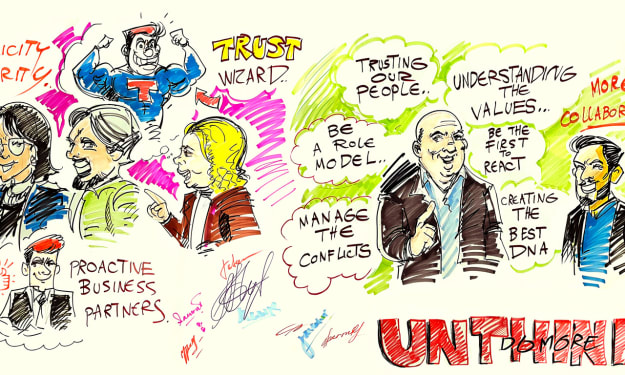 ICITY
RITY.
TRUST
WIZARD.
T
PROACTIVE
BUSINESS
PARTNERS.
TRUSTING
OUR
PEOPLE..
BE
A ROLE
MODEL..
MANAGE
THE
CONFLICTS
UNDERSTANDING
THE
VALUES...
BE THE
FIRST
TO
REACT
CREATING
THE
BEST
DNA
MORE
COLLABOR
UNTHIN
DO MORE